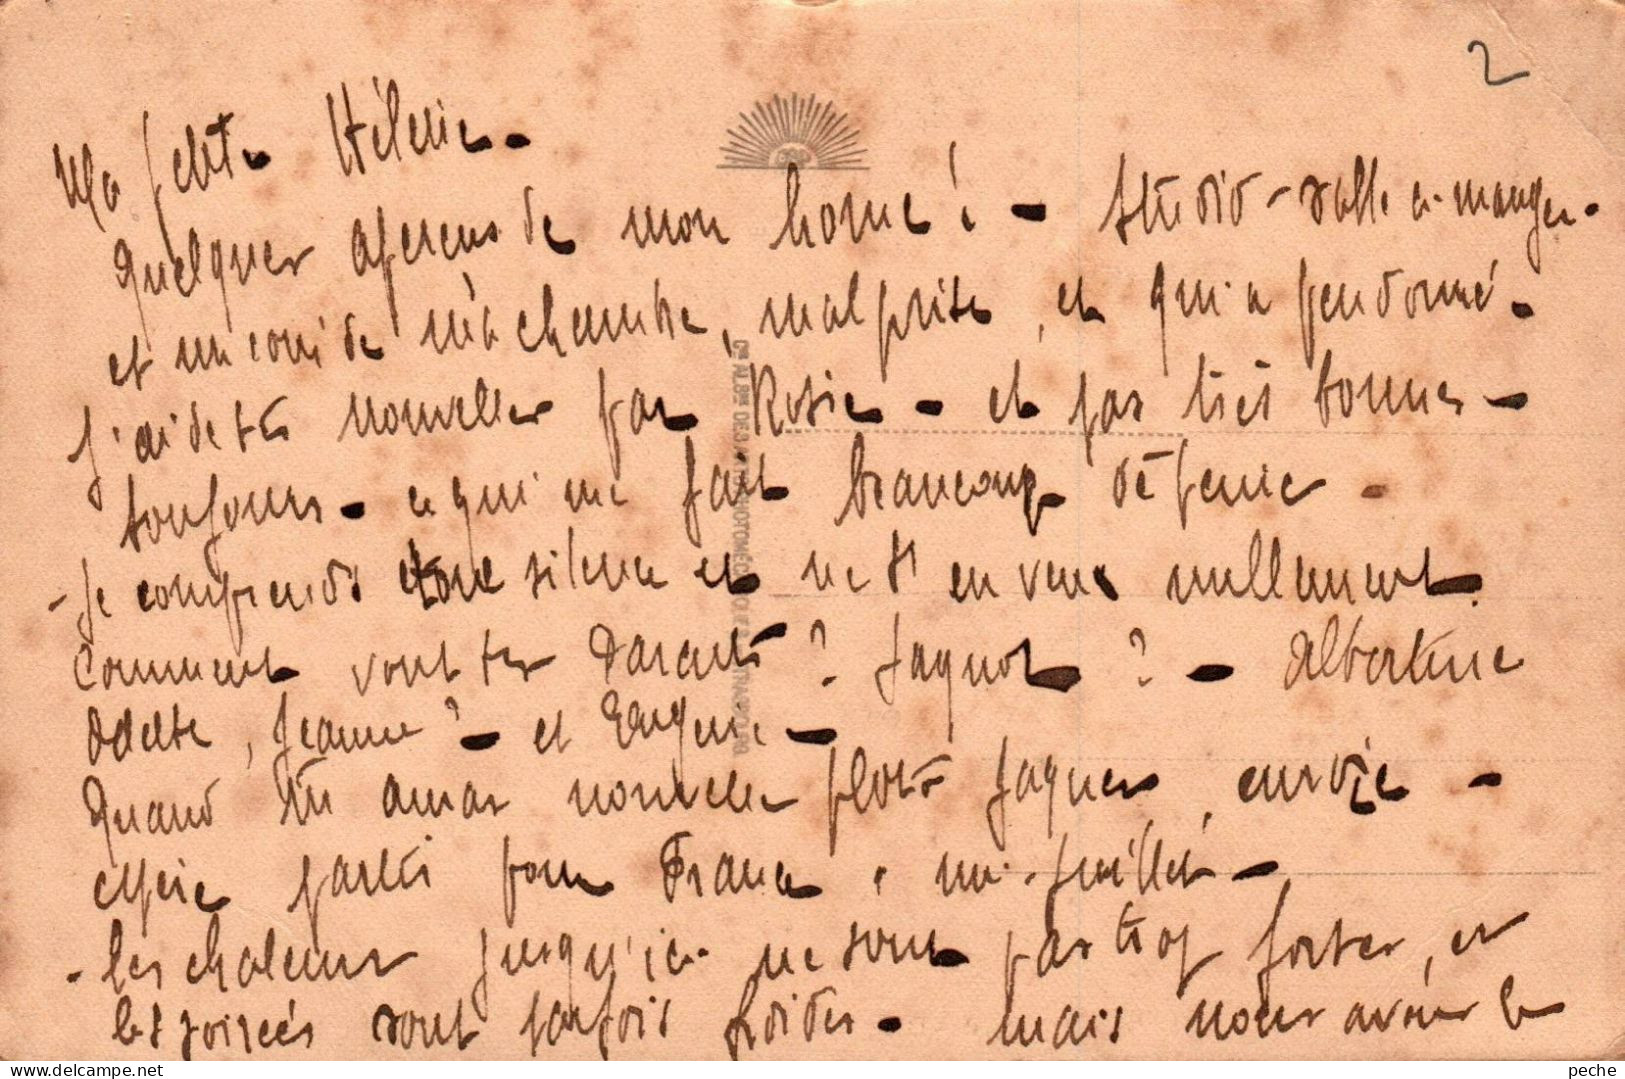 2
Ma petite Hélène -
Quelques aperçus de mon home! - Studio - salle à manger -
et un coin de ma chambre, mal prise, et qui a peu donné -
J'ai de tes nouvelles par Rosie - et pas très bonnes -
toujours - ce qui me fait beaucoup de peine -
- Je comprends ton silence et ne t'en veux nullement.
Comment vont tes Parents? Jaquot? - Albertine
Odette, Jeanne? - et Eugène -
Quand tu auras nouvelles photos Jaques, envoie -
espère partir pour France, mi-juillet -
- les chaleurs jusqu'ici ne sont pas trop fortes, et
les soirées sont parfois froides - mais nous avons le
peche